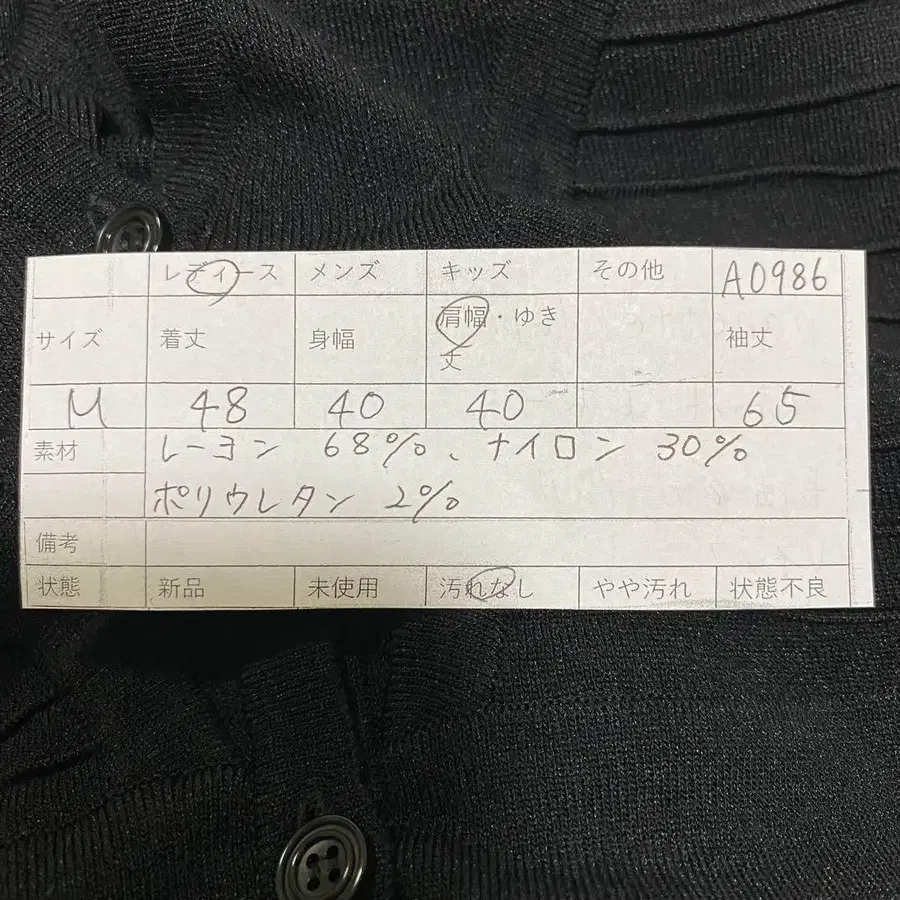 レディース メンズ キッズ その他 A0986
サイズ 着丈 身幅 肩幅・ゆき丈 袖丈
M 48 40 40 65
素材 レーヨン 68%、ナイロン 30%
ポリウレタン 2%
備考
状態 新品 未使用 汚れなし やや汚れ 状態不良